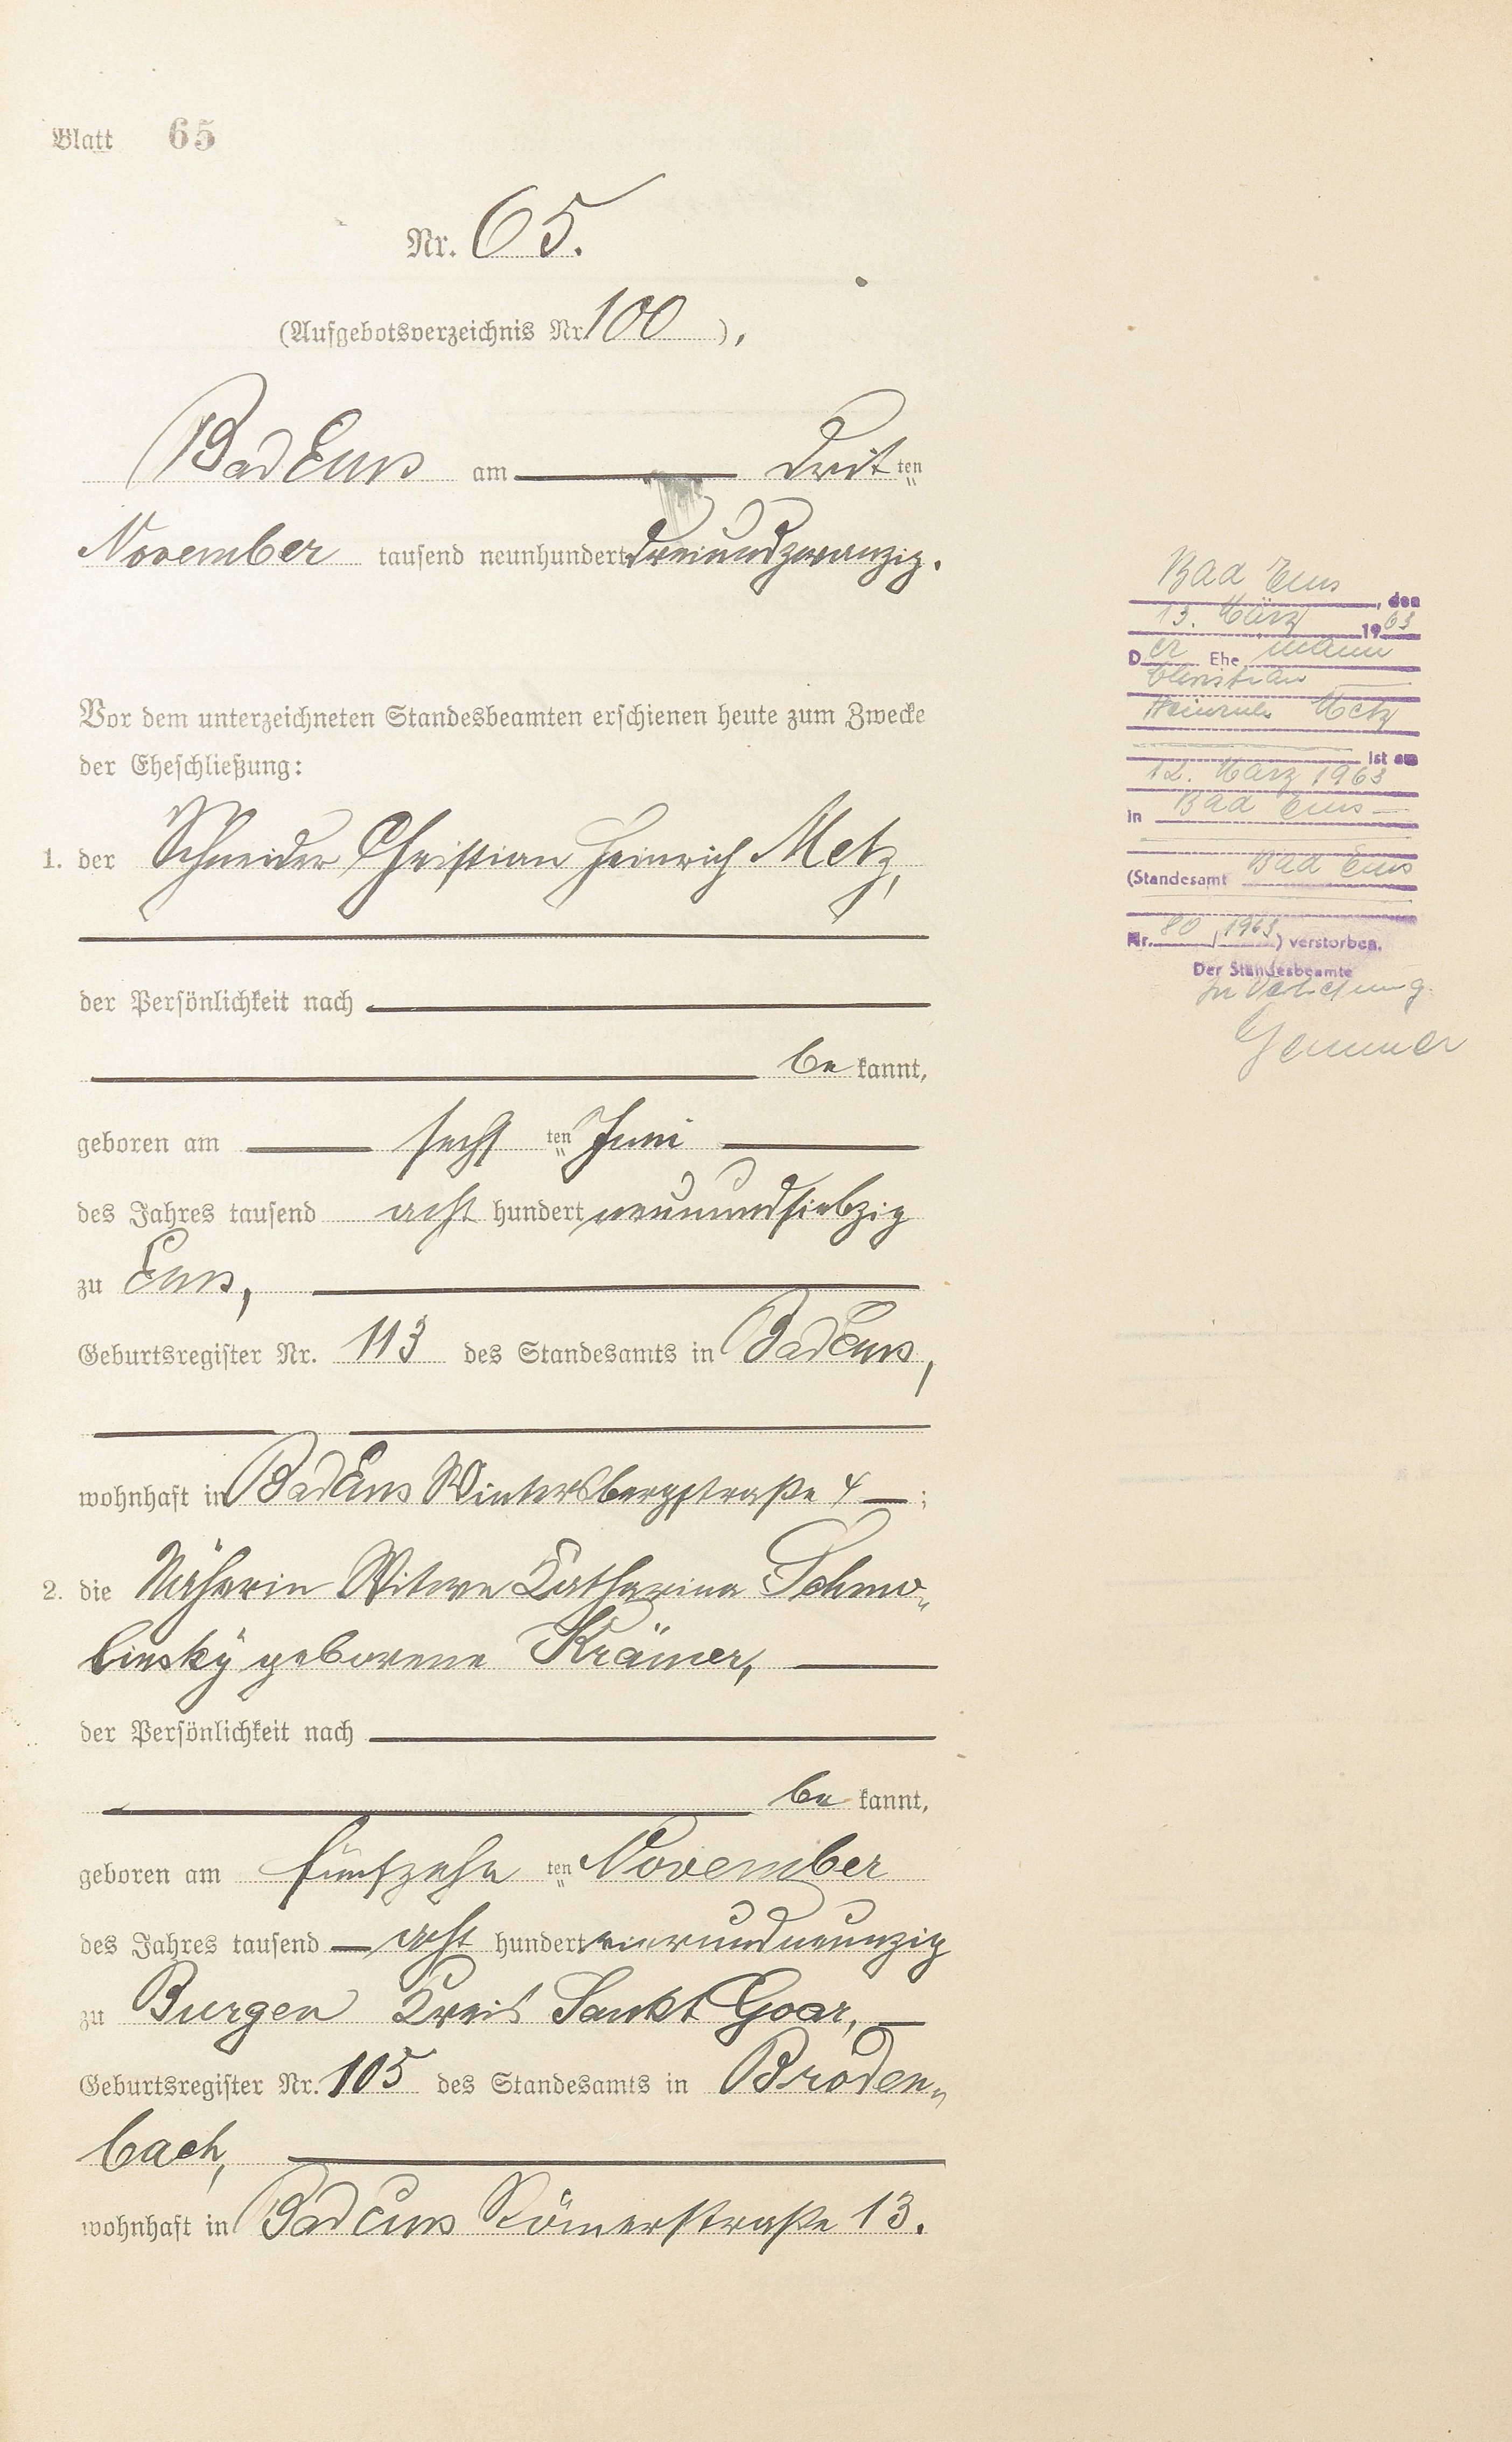 Blatt 65
Nr. 65.
(Aufgebotsverzeichnis Nr. 100 ),
Bad Ems am Dritten
November tausend neunhundert dreiundzwanzig.
Vor dem unterzeichneten Standesbeamten erschienen heute zum Zwecke
der Eheschließung:
1. der Schneider Christian Heinrich Metz,
der Persönlichkeit nach
bekannt,
geboren am sechsten Juni
des Jahres tausend acht hundert neunundsiebzig
zu Ems,
Geburtsregister Nr. 113 des Standesamts in Bad Ems,
wohnhaft in Bad Ems Wintersbergstraße 4 ;
2. die Näherin Witwe Katharina Schmo„
linsky geborene Krämer,
der Persönlichkeit nach
bekannt,
geboren am fünfzehnten November
des Jahres tausend acht hundert vierundneunzig
zu Burgen Kreis Sankt Goar,
Geburtsregister Nr. 105 des Standesamts in Broden„
bach,
wohnhaft in Bad Ems Römerstraße 13.
Bad Ems, den
13. März 1963
Der Ehemann
Christian
Heinrich Metz
ist am
12. März 1963
in Bad Ems
(Standesamt Bad Ems
Nr. 80 / 1963) verstorben.
Der Standesbeamte
In Vertretung.
Gemmer